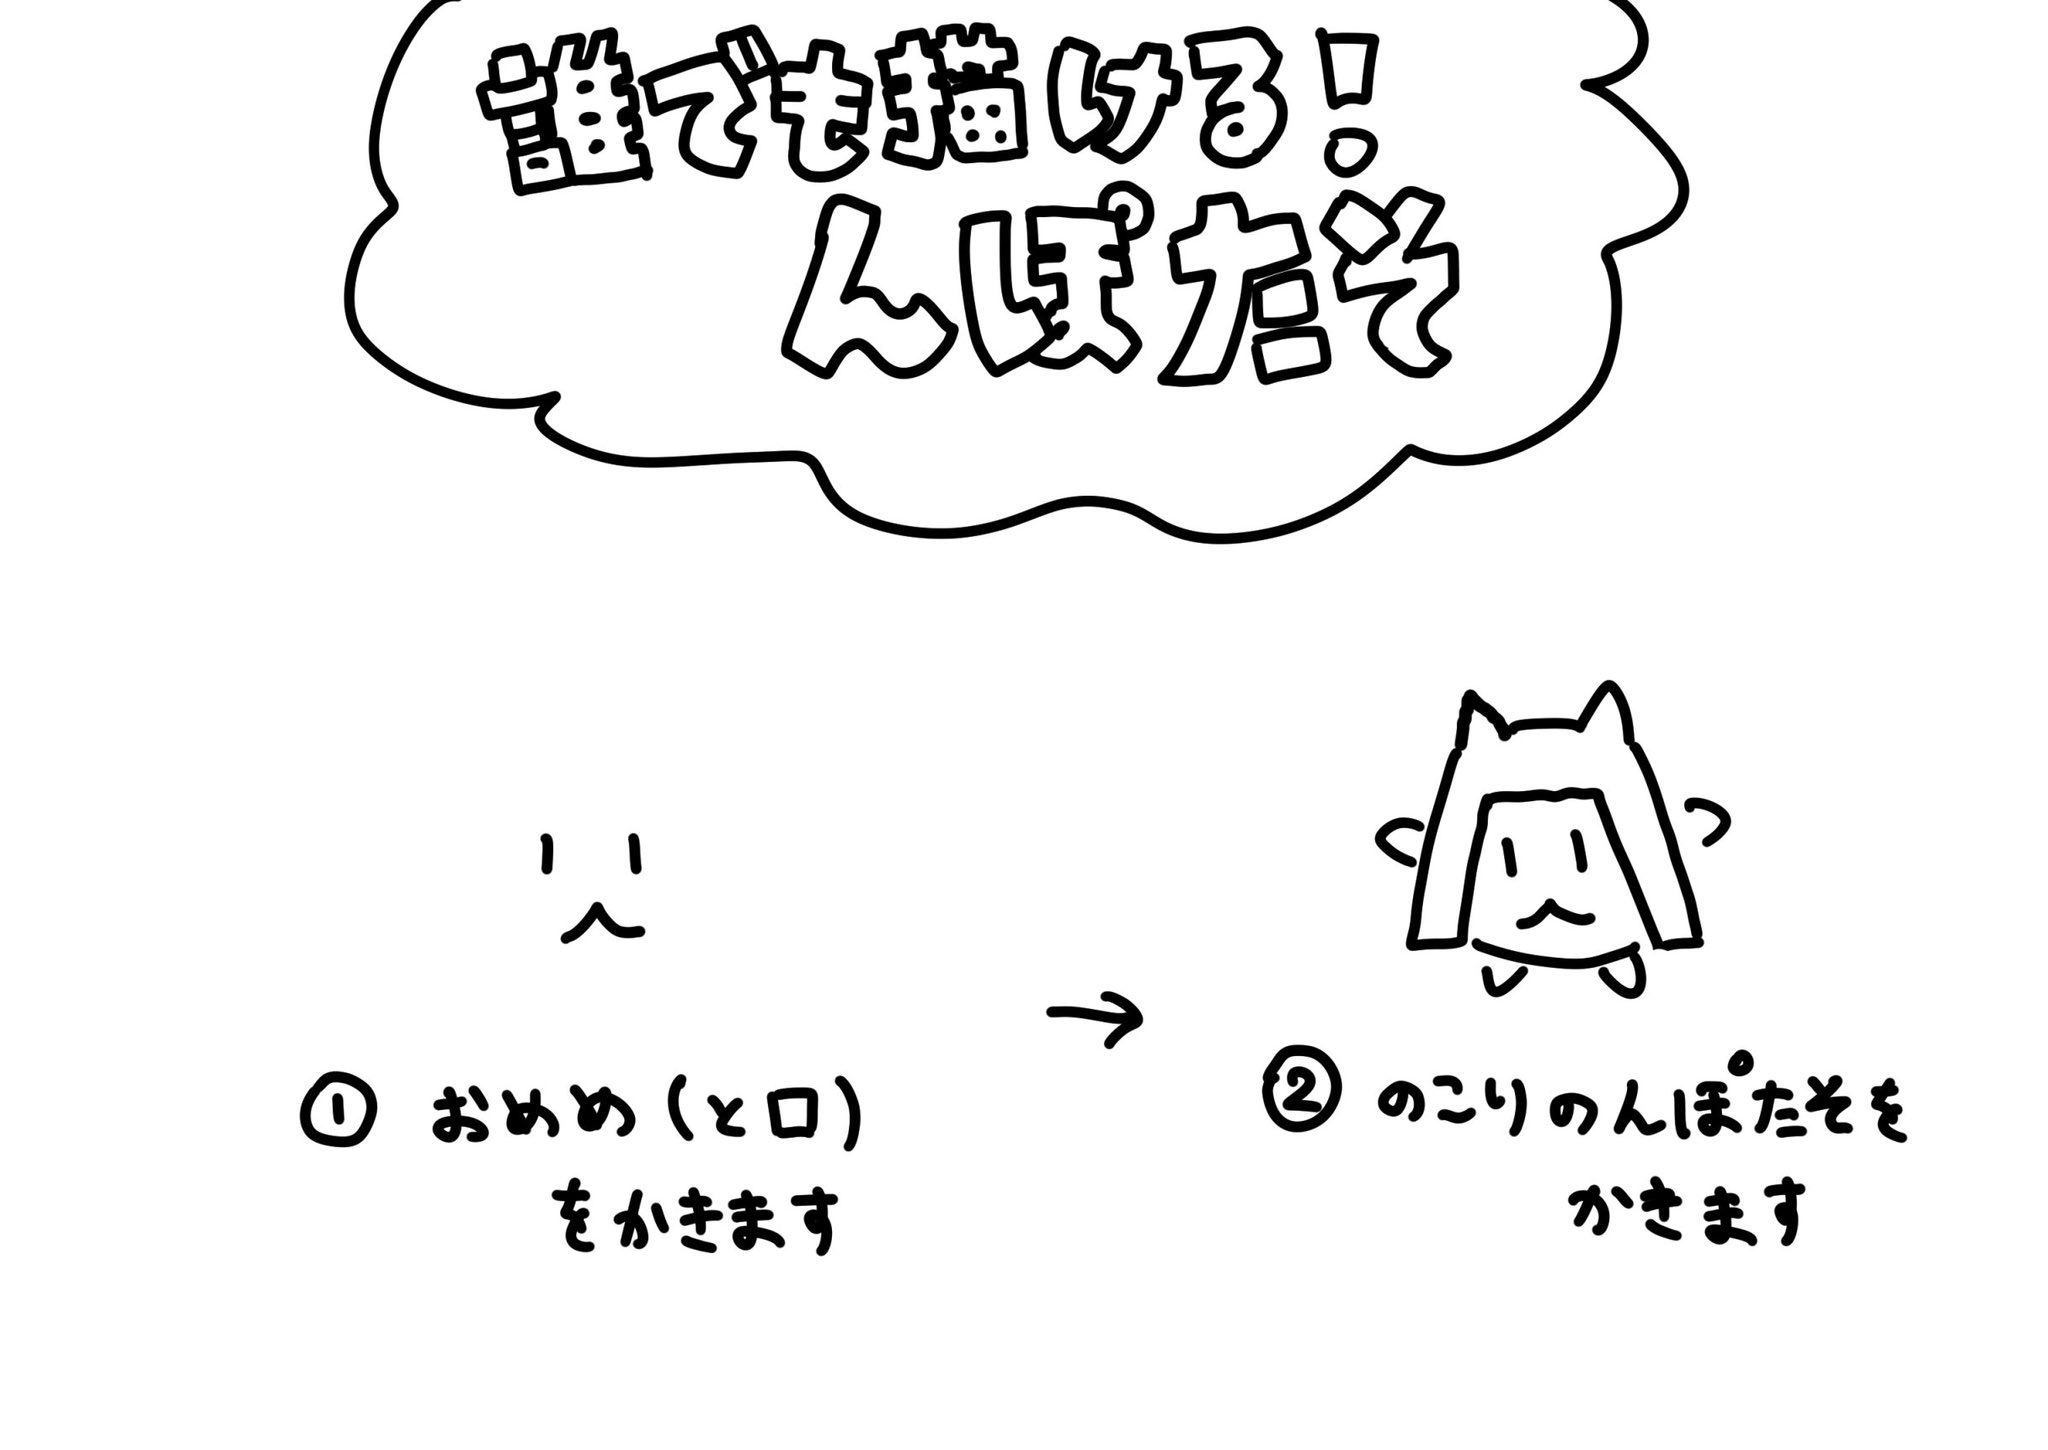 誰でも描ける!
んぽたそ
① おめめ(と口)
をかきます
→
② のこりのんぽたそを
かきます